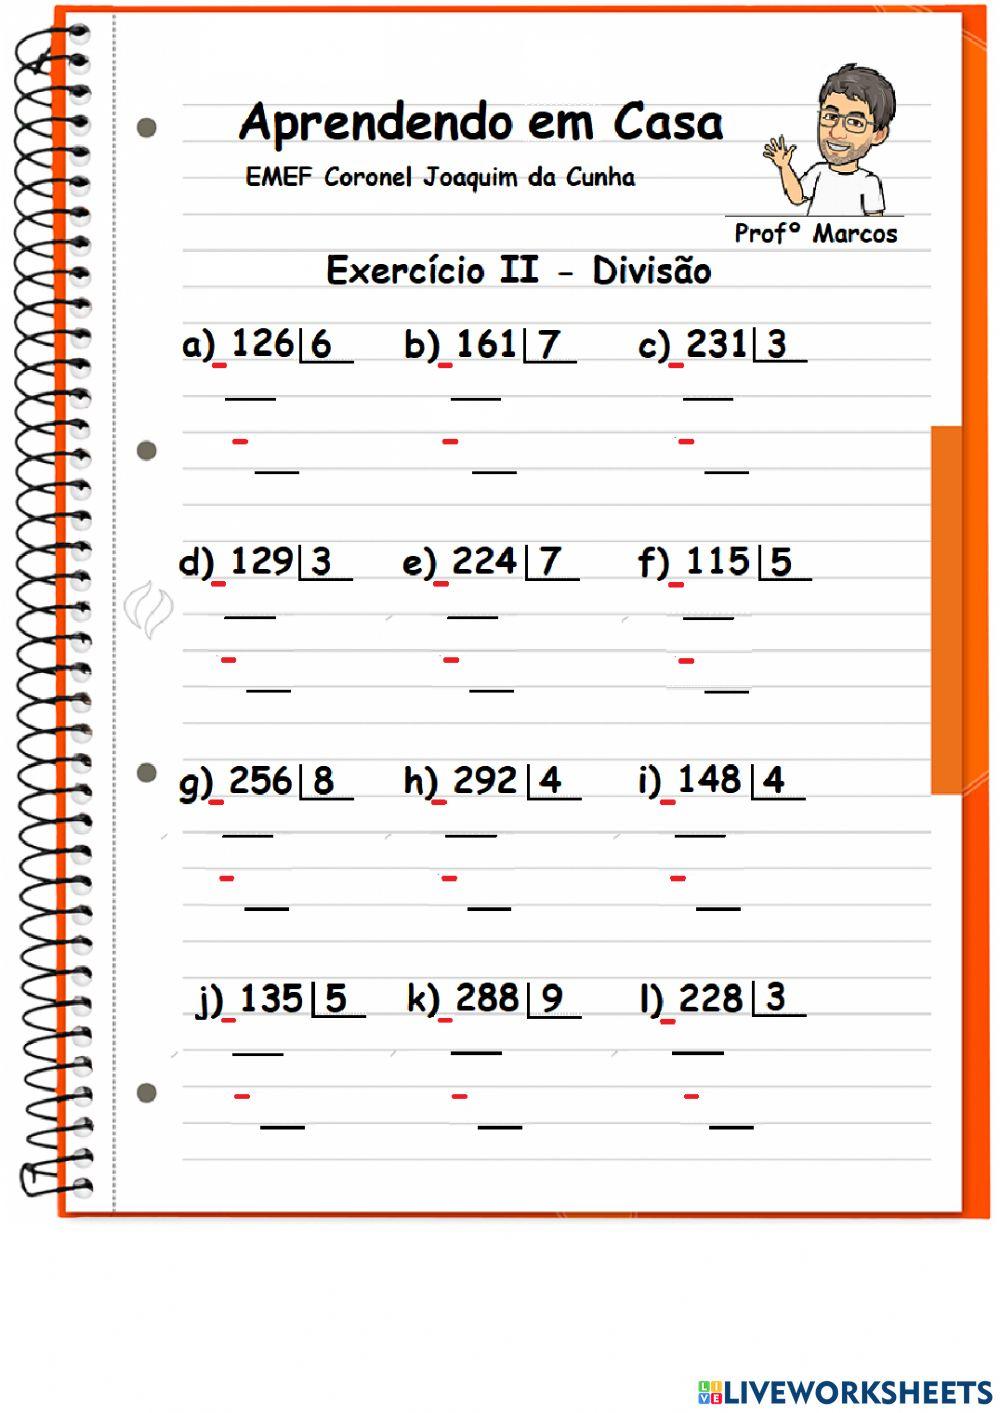 Aprendendo em Casa
EMEF Coronel Joaquim da Cunha
Profº Marcos
Exercício II - Divisão
a) 126 6 b) 161 7 c) 231 3
d) 129 3 e) 224 7 f) 115 5
g) 256 8 h) 292 4 i) 148 4
j) 135 5 k) 288 9 l) 228 3
LIVE LIVEWORKSHEETS